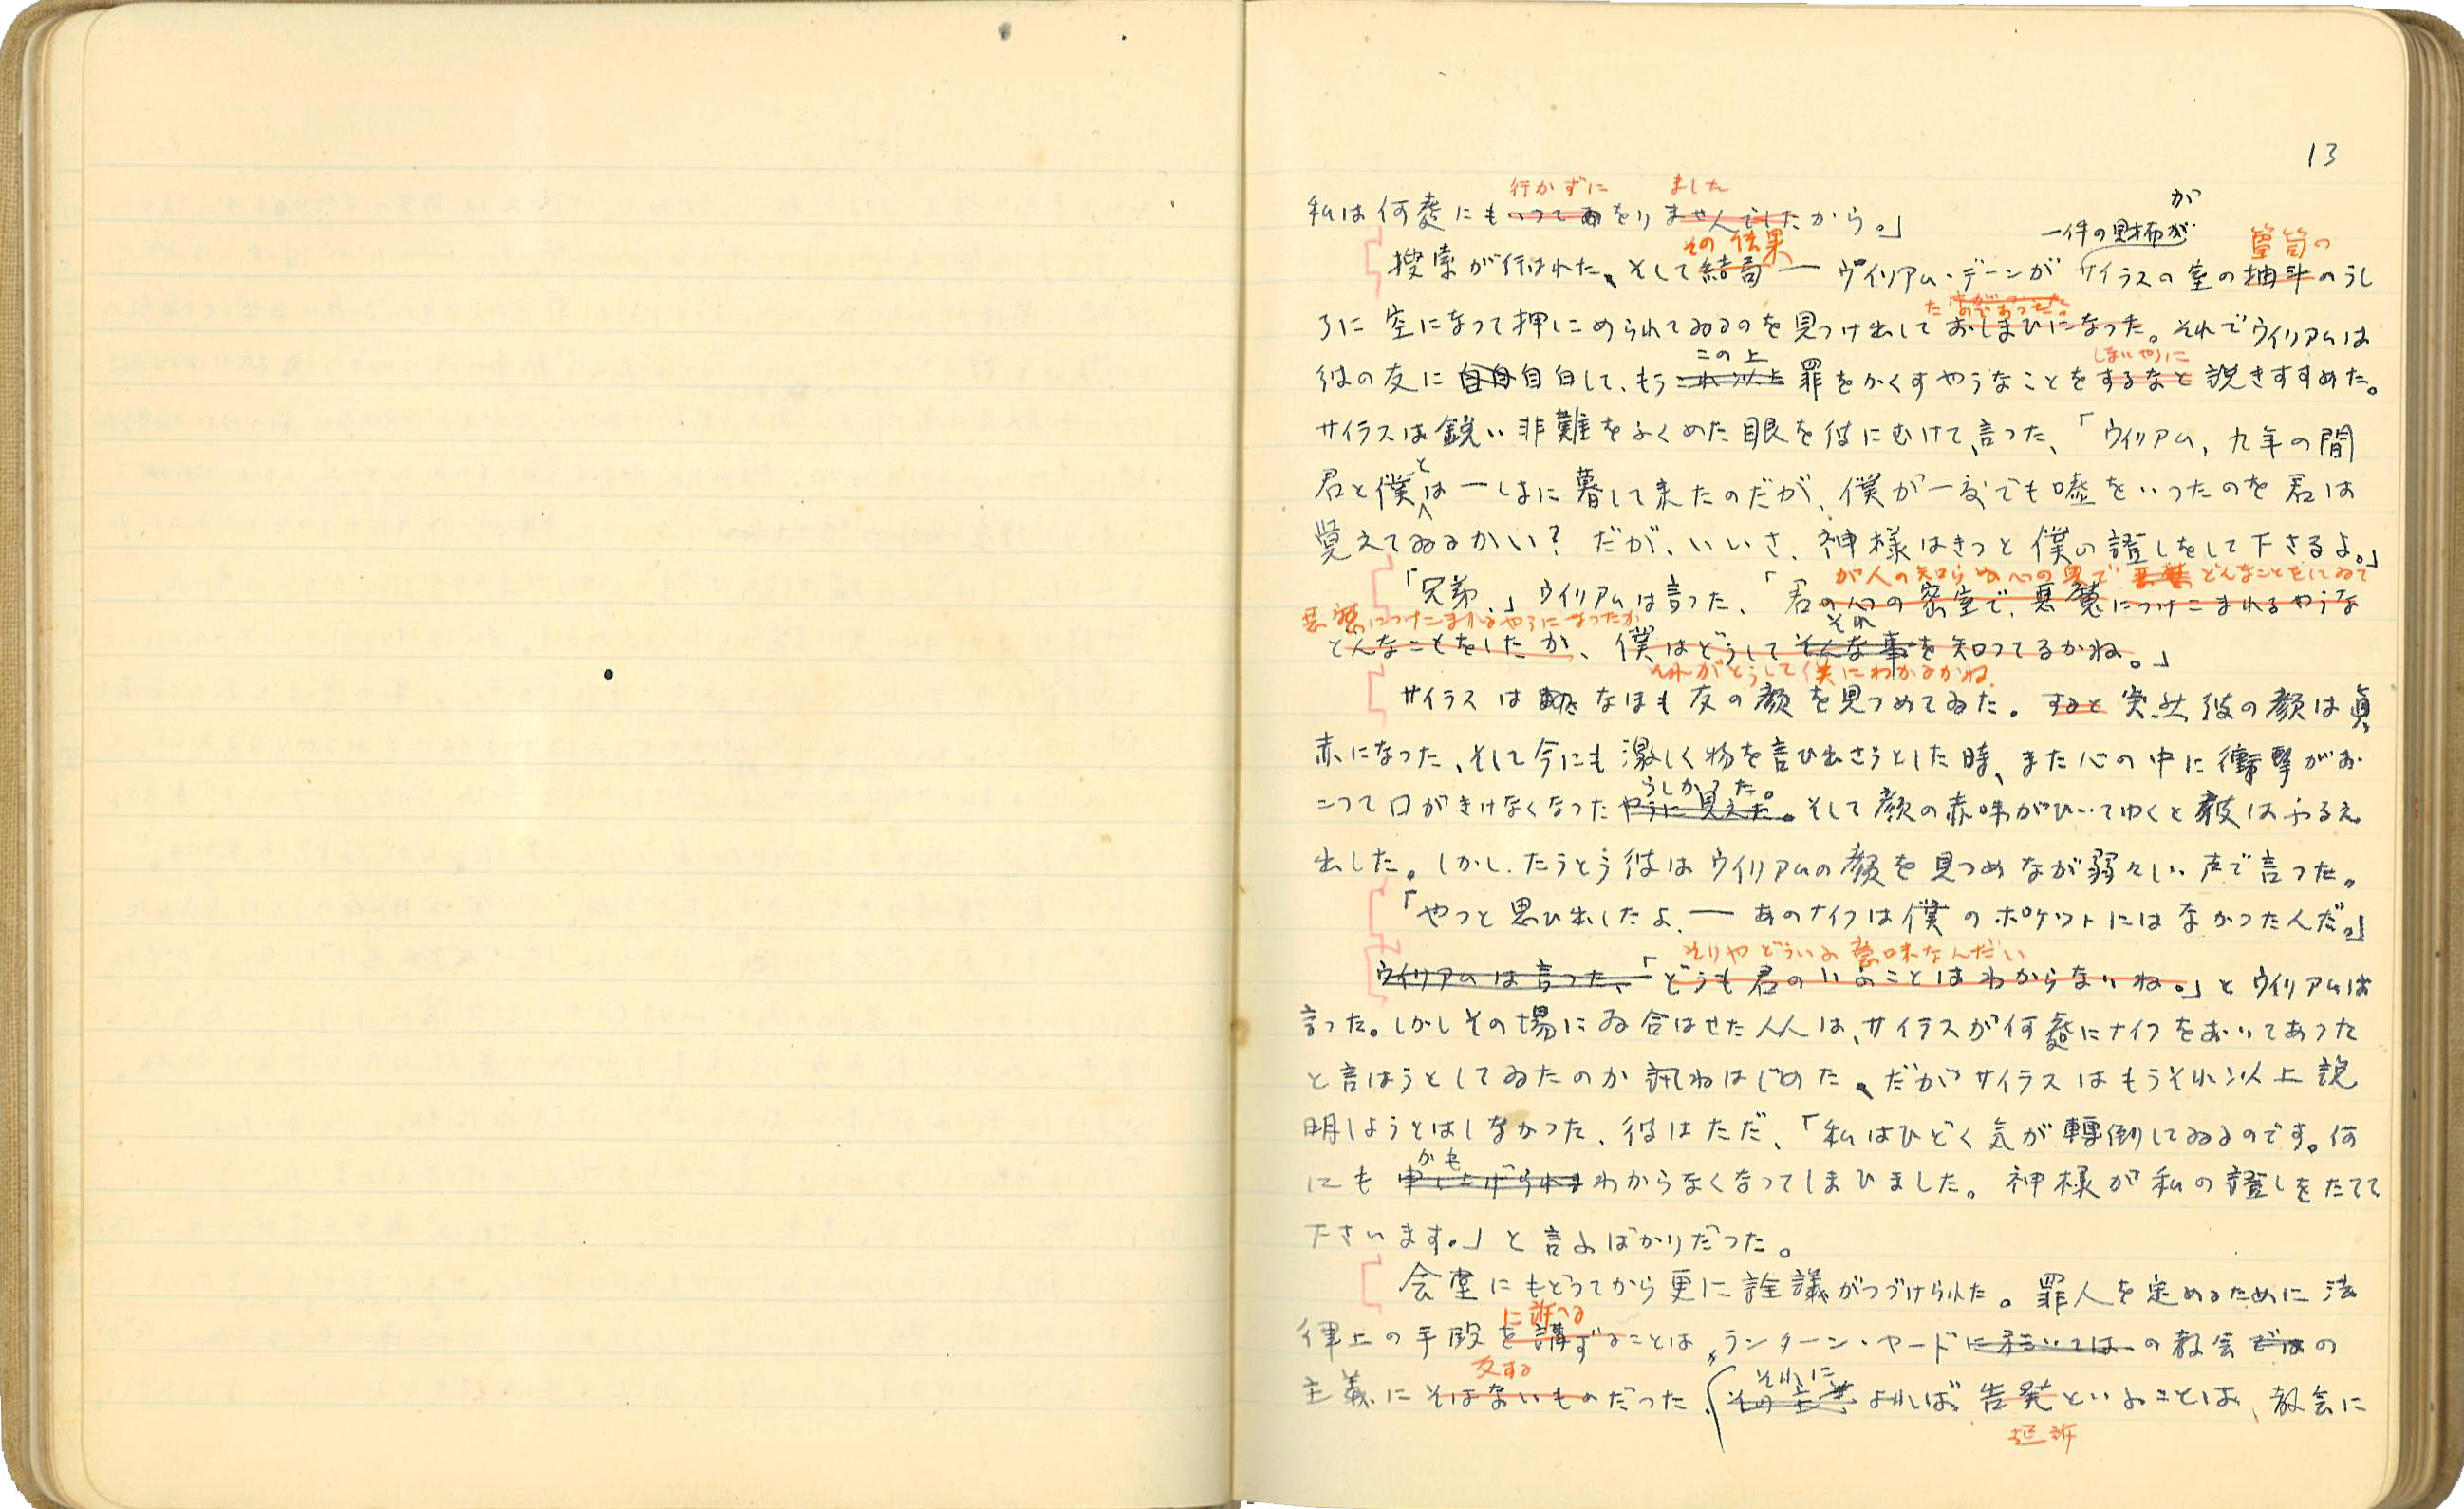 13
行かずに ました
私は何處にもいつてをりませんでしたから。」
が
一件の財布が
その結果 箪笥の
搜索が行はれた、そして結局— ウイリアム・デーンが サイラスの室の抽斗のうし
たのであつた。
ろに空になつて押しこめられてゐるのを見つけ出しておしまひになつた。それでウイリアムは
この上 しないやうに
彼の友に自白自白して、もうこれ以上罪をかくすやうなことをするなと説きすすめた。
サイラスは鋭い非難をふくめた眼を彼にむけて、言つた、「ウイリアム、九年の間
と
君と僕は一しよに暮して来たのだが、僕が一度でも嘘をいつたのを君は
覚えてゐるかい? だが、いいさ、神様はきつと僕の證しをして下さるよ。」
が人の知らぬ心の奥で どんなことをしてゐて
「兄弟、」ウイリアムは言つた、「君の心の密室で、悪魔につけこまれるやうな
悪魔につけこまれるやうになつたか
それ
どんなことをしたか、僕はどうしてそんな事を知つてるかね。」
それがどうして僕にわかるかね。
サイラスは なほも友の顔を見つめてゐた。すると突然彼の顔は真
赤になつた、そして今にも激しく物を言ひ出さうとした時、また心の中に衝撃がお
うしかつた。
こつて口がきけなくなつたやうに見えた。そして顔の赤味がひいてゆくと彼はふるえ
出した。しかし、たうとう彼はウイリアムの顔を見つめなが弱々しい声で言つた。
「やつと思ひ出したよ、— あのナイフは僕のポケツトにはなかつたんだ。」
そりやどういふ意味なんだい
ウイリアムは言つた、「どうも君のいふことはわからないね。」とウイリアムは
言つた。しかしその場にゐ合はせた人人は、サイラスが何處にナイフをおいてあつた
と言はうとしてゐたのか訊ねはじめた、だがサイラスはもうそれ以上説
明しようとはしなかつた、彼はただ、「私はひどく気が轉倒してゐるのです。何
かも
にも申し上げられまわからなくなつてしまひました。神様が私の證しをたてて
下さいます。」と言ふばかりだつた。
会堂にもどつてから更に詮議がつづけられた。罪人を定めるために法
に訴へる
律上の手段を講ずることは、ランターン・ヤードに於いてはの教会ではの
反する それに
主義にそはないものだつた。その主義よれば告発といふことは、教会に
起訴